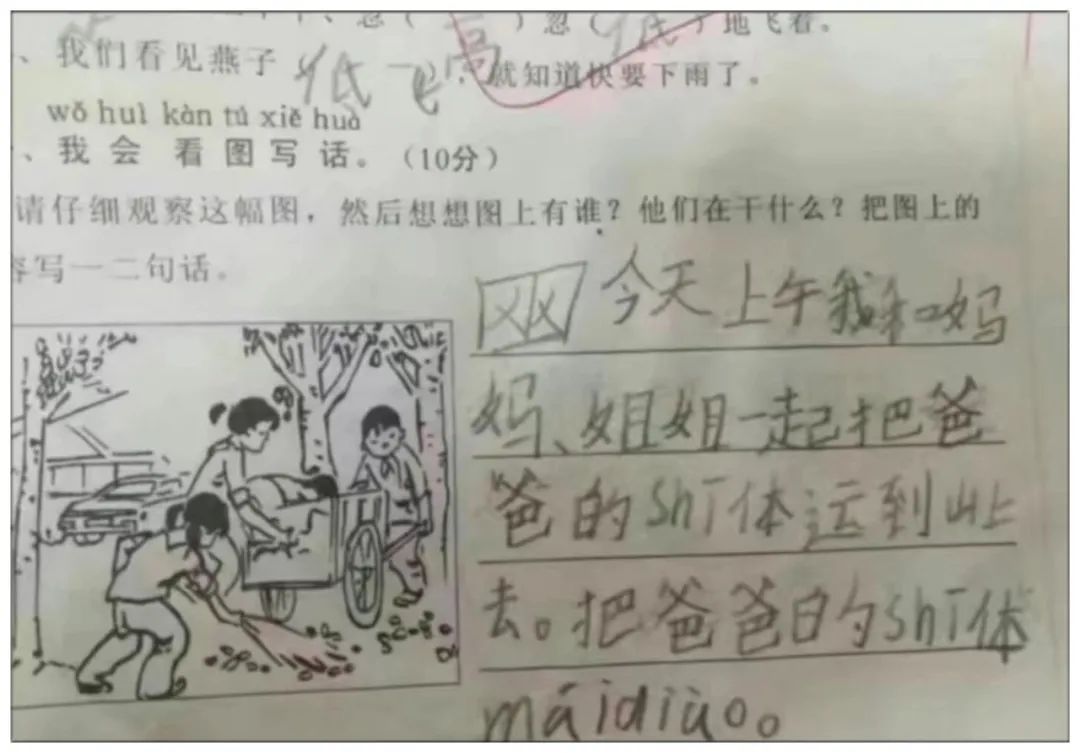 忽（高）忽（低）地飞着。
、我们看见燕子（低飞），就知道快要下雨了。
wǒ huì kàn tú xiě huà
、我会看图写话。（10分）
请仔细观察这幅图，然后想想图上有谁？他们在干什么？把图上的
容写一二句话。
今天上午我和妈
妈、姐姐一起把爸
爸的shī体运到山上
去。把爸爸的shī体
máidiào。